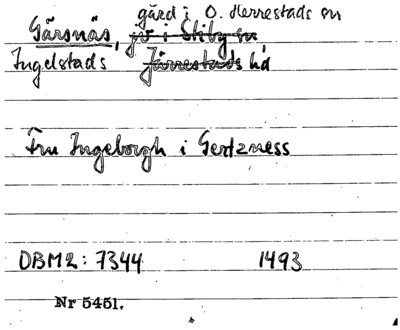 gård i Ö. Herrestads sn
Gärsnäs, jvs i Stiby sn
Ingelstads Järrestads hd
Fru Ingeborgh i Gertzness
DBM2: 7344 1493
Nr 5451.